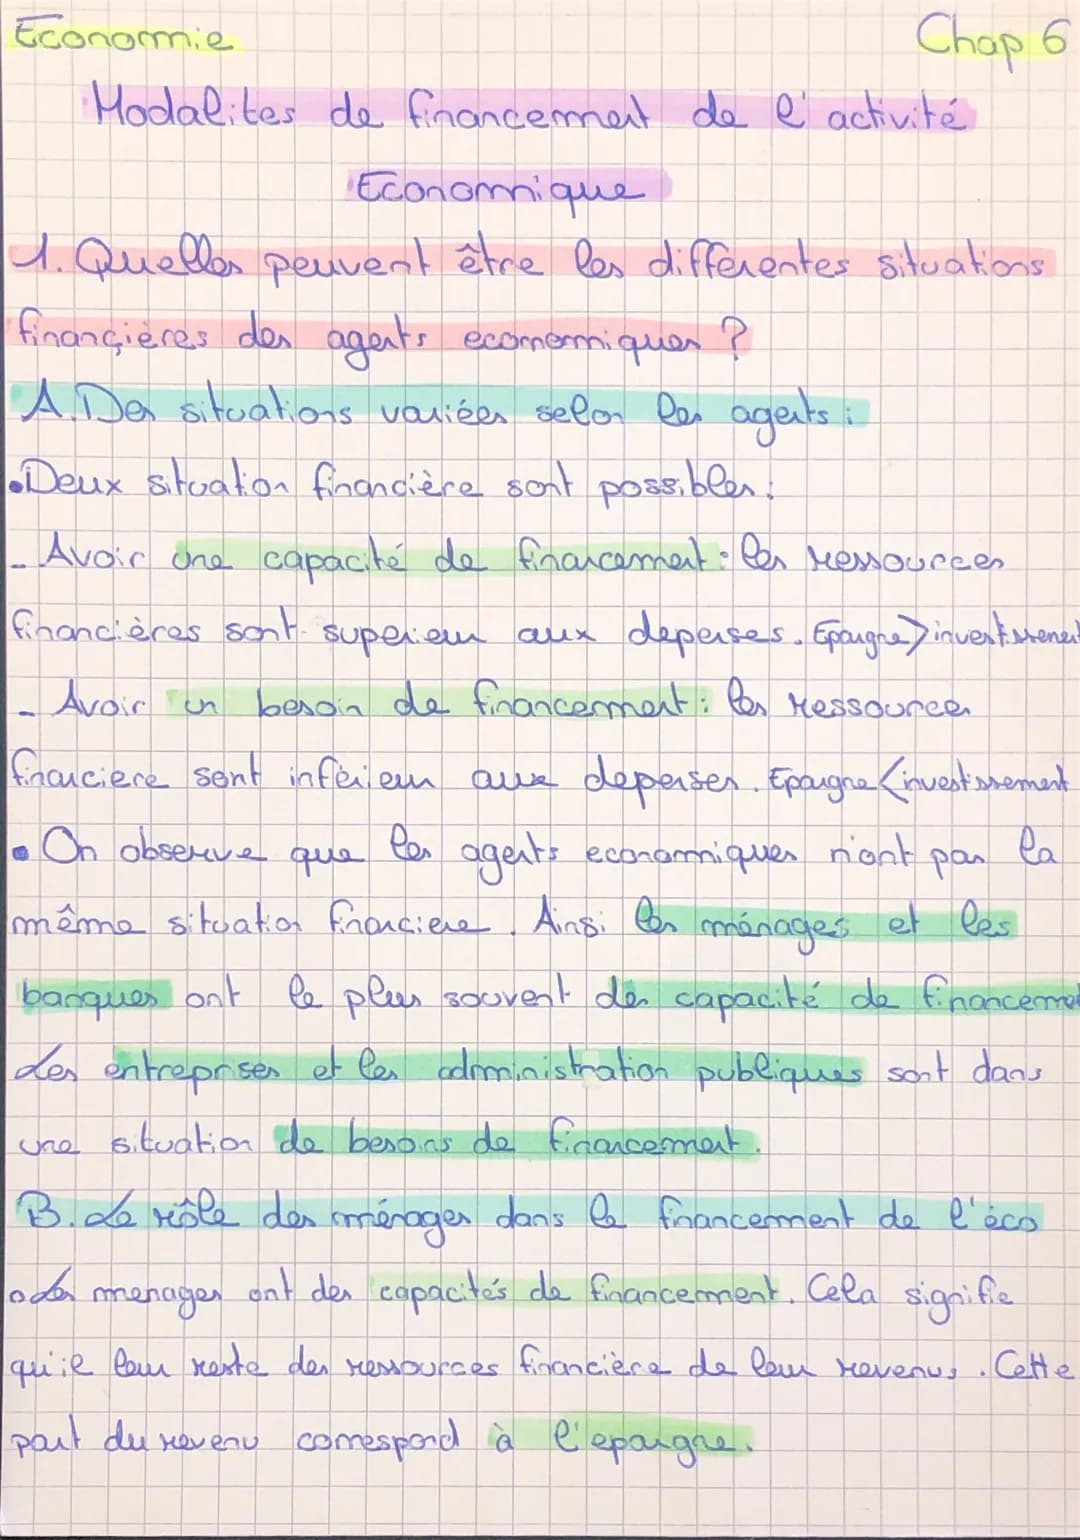 Economie Chap 6
Modalites de financement de l'activité
Economique
1. Quelles peuvent être les différentes situations
financières des agents economiques ?
A. Des situations variées selon les agents :
•Deux situation financière sont possibles :
- Avoir une capacité de financement : les ressources
financières sont superieur aux depenses. Epargne > investissement
- Avoir un besoin de financement : les ressources
financiere sont inférieur aux depenses. Epargne < investissement
• On observe que les agents economiques n'ont pas la
même situation financiere. Ainsi les ménages et les
banques ont le plus souvent des capacité de financement
Les entreprises et les administration publiques sont dans
une situation de besoins de financement.
B. Le rôle des ménages dans le financement de l'éco
• Les menages ont des capacités de financement. Cela signifie
qu'il leur reste des ressources financière de leur revenus. Cette
part du revenu correspond à l'epargne.